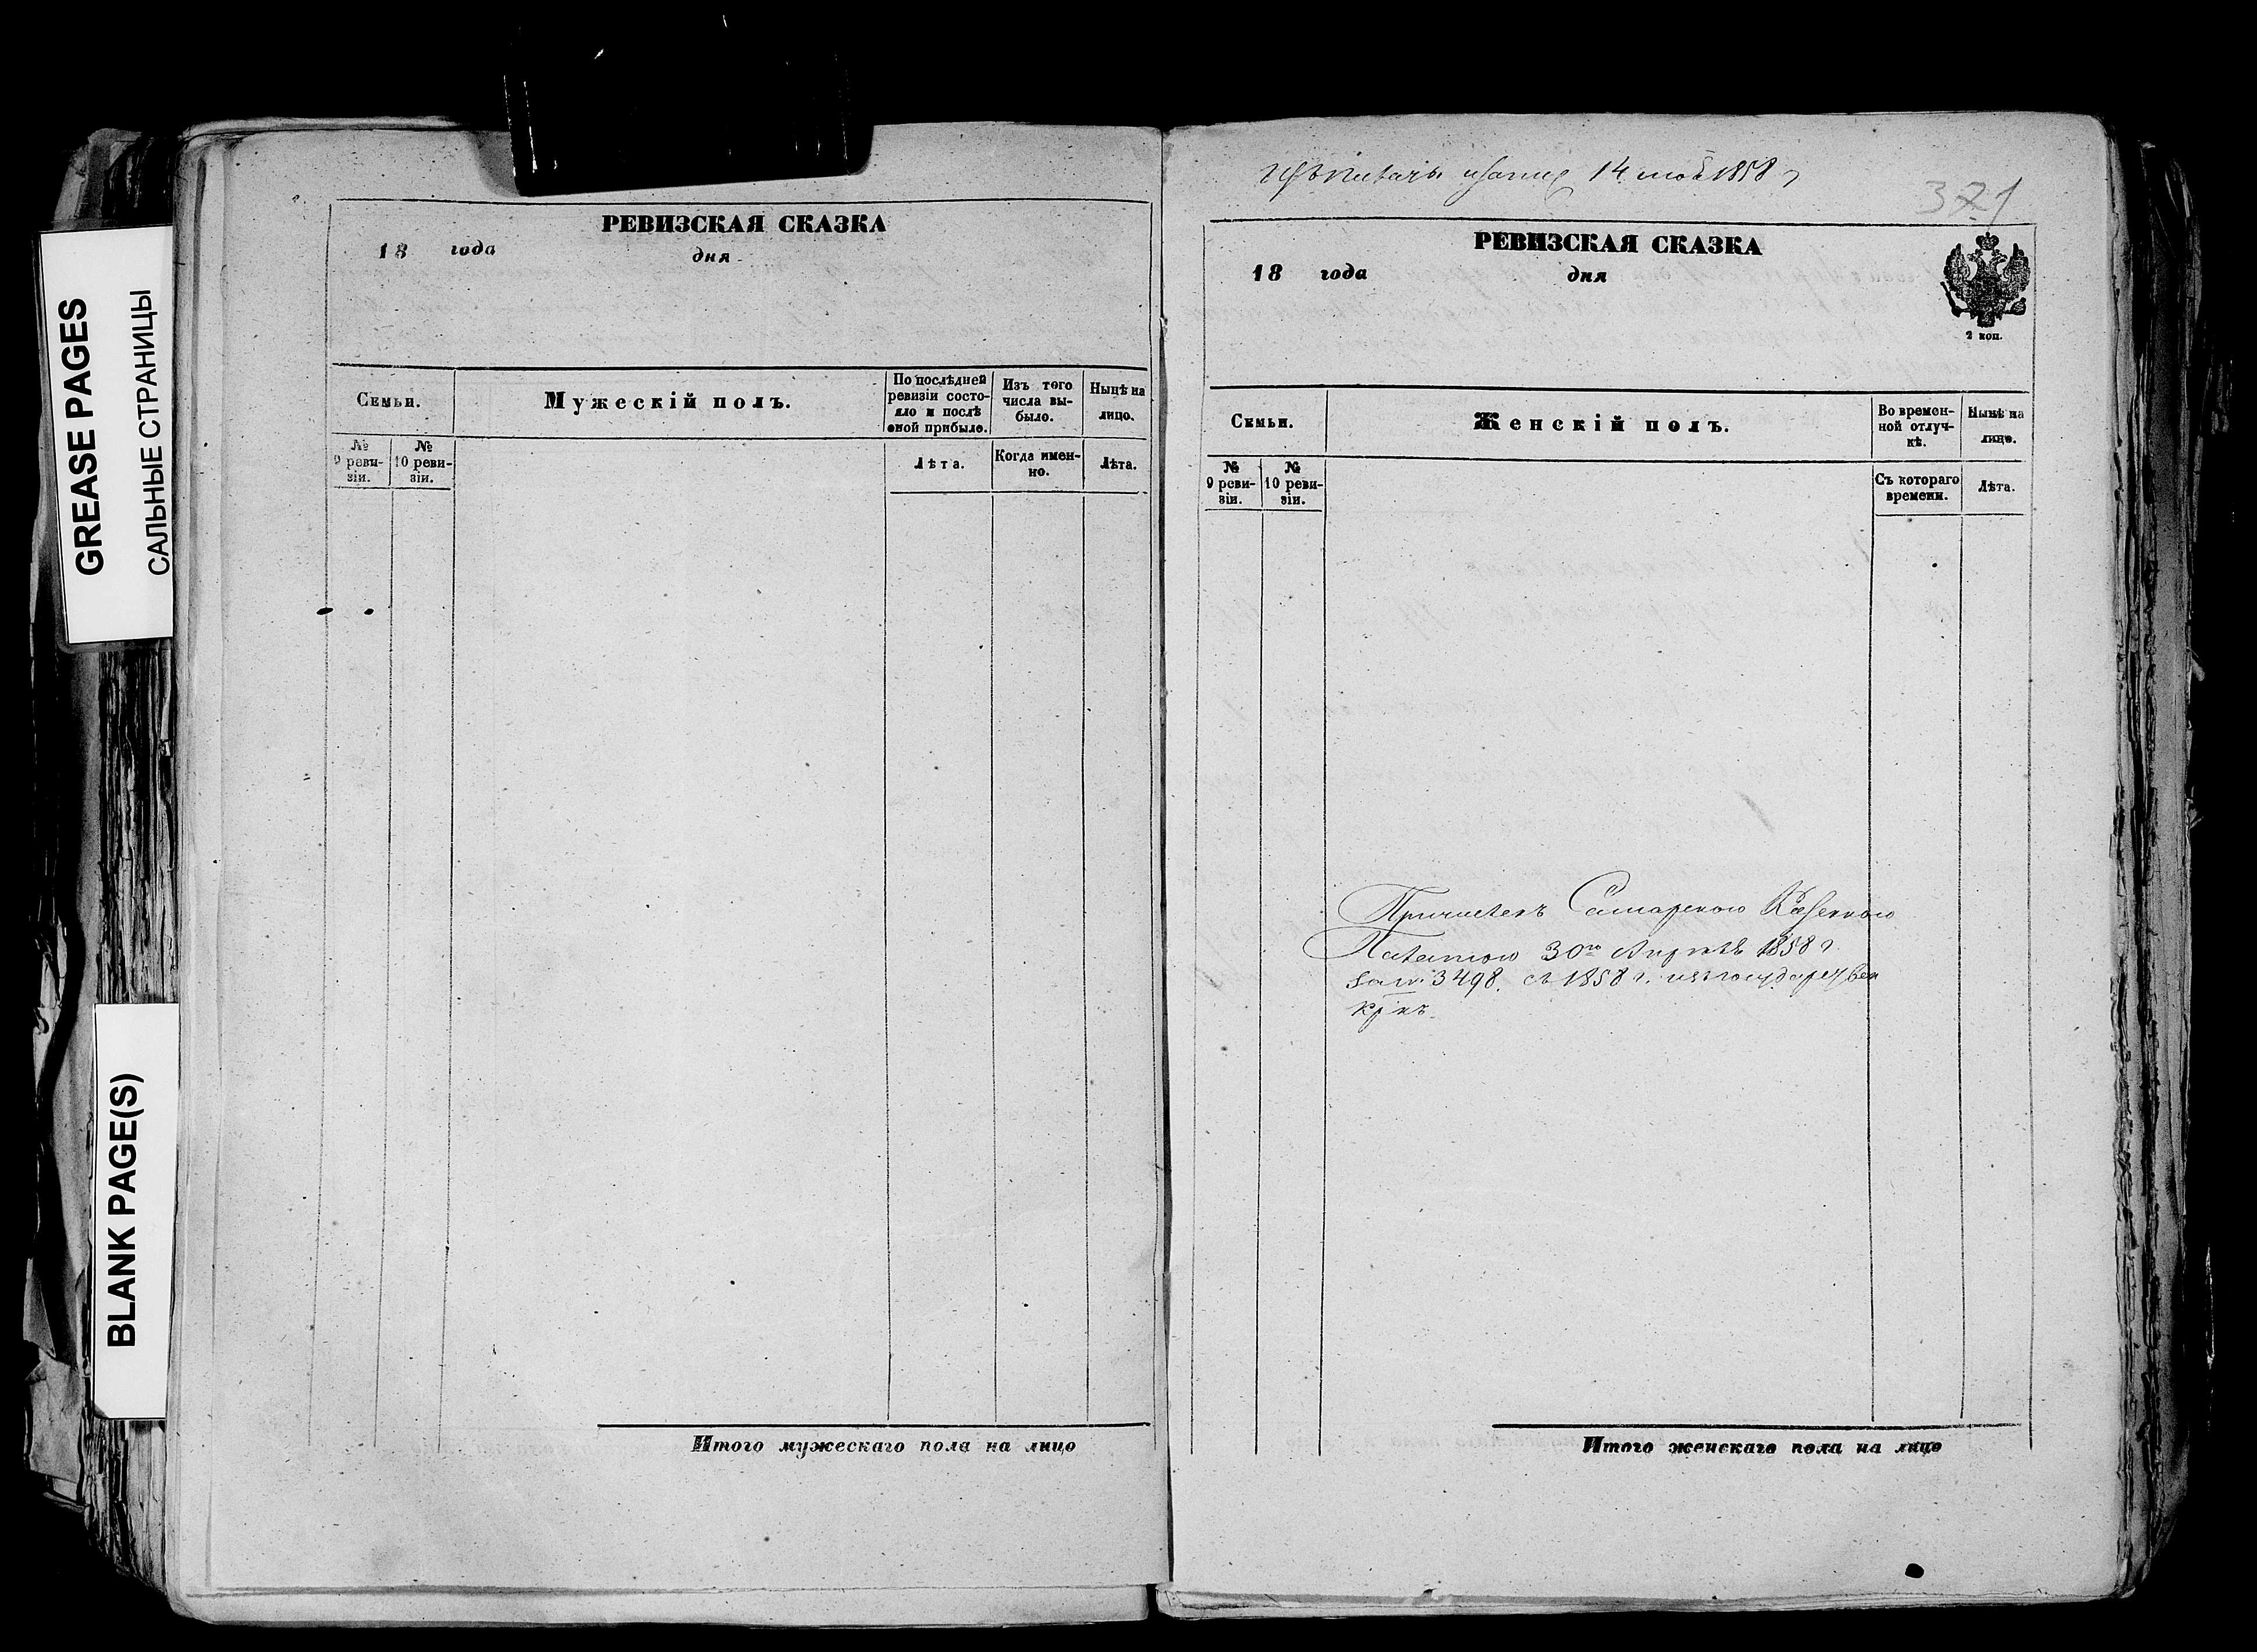 GREASE PAGES
САЛЬНЫЕ СТРАНИЦЫ
BLANK PAGE(S)
РЕВИЗСКАЯ СКАЗКА
18 года дня
Семьи.
Мужескій полъ.
По послѣдней
ревизіи состо-
яло и послѣ
оной прибыло.
Изъ того
числа вы-
было.
Нынѣ на
лицо.
№
9 реви-
зіи.
№
10 реви-
зіи.
Лѣта.
Когда имен-
но.
Лѣта.
Итого мужескаго пола на лицо
14 1858 г
371
РЕВИЗСКАЯ СКАЗКА
18 года дня
2 коп.
Семьи.
Женскій полъ.
Во времен-
ной отлуч-
кѣ.
Нынѣ на
лицо.
№
9 реви-
зіи.
№
10 реви-
зіи.
Съ котораго
времени.
Лѣта.
Причисленъ Самарскою Казенною
Палатою 30го Апрѣля 1858 г.
за № 3498. съ 1858 г. изъ государствен
кр нъ.
Итого женскаго пола на лицо